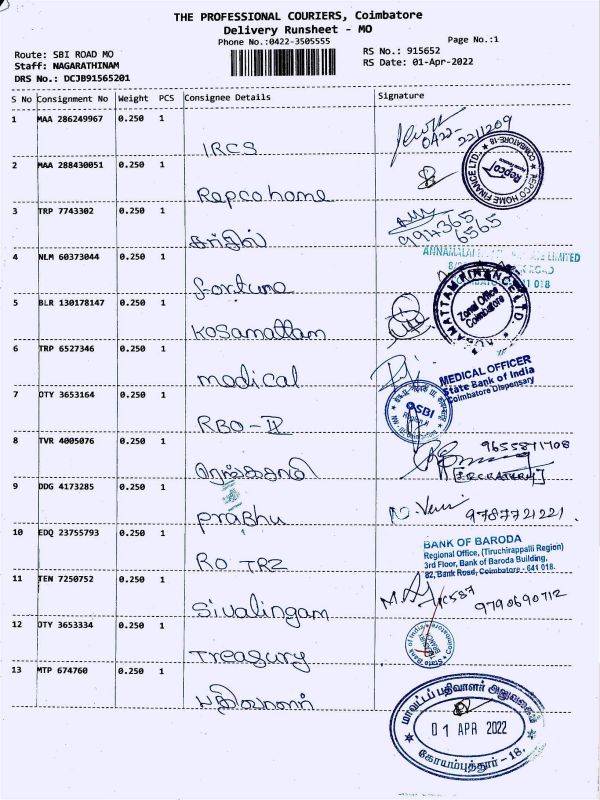 THE PROFESSIONAL COURIERS, Coimbatore
Delivery Runsheet - MO
Phone No.:0422-3505555
Page No.:1
Route: SBI ROAD MO
Staff: NAGARATHINAM
DRS No.: DCJB91565201
RS No.: 915652
RS Date: 01-Apr-2022
S No Consignment No Weight PCS Consignee Details Signature
1 MAA 286249967 0.250 1
IRCS
2 MAA 288430051 0.250 1
Repco home
REPCO HOME FINANCE LTD. COIMBATORE-18
Repco
3 TRP 7743302 0.250 1
994365
6565
4 NLM 60373044 0.250 1
fortune
LIMITED
ROAD
641 018
5 BLR 130178147 0.250 1
Kosamattam
Zonal Office
Coimbatore
6 TRP 6527346 0.250 1
medical
MEDICAL OFFICER
State Bank of India
Coimbatore Dispensary
7 OTY 3653164 0.250 1
RBO - III
SBI
8 TVR 4005076 0.250 1
9655871708
9 DDG 4173285 0.250 1
Prabhu
N. Veni 9787721221.
10 EDQ 23755793 0.250 1
RO TRZ
BANK OF BARODA
Regional Office, (Tiruchirappalli Region)
3rd Floor, Bank of Baroda Building,
82, Bank Road, Coimbatore - 641 018.
11 TEN 7250752 0.250 1
Sivalingam
9790690712
12 OTY 3653334 0.250 1
Treasury
State Bank of India
Coimbatore
13 MTP 674760 0.250 1
பதிவாளர்
மாவட்டப் பதிவாளர் அலுவலகம்
01 APR 2022
கோயம்புத்தூர் - 18.